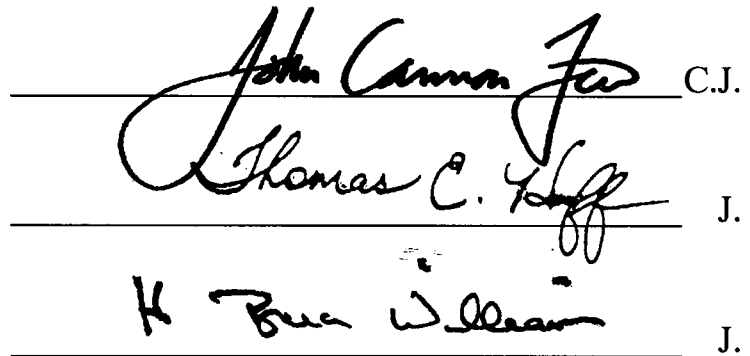 John Cannon Few C.J.
Thomas C. Huff J.
H Bruce Williams J.